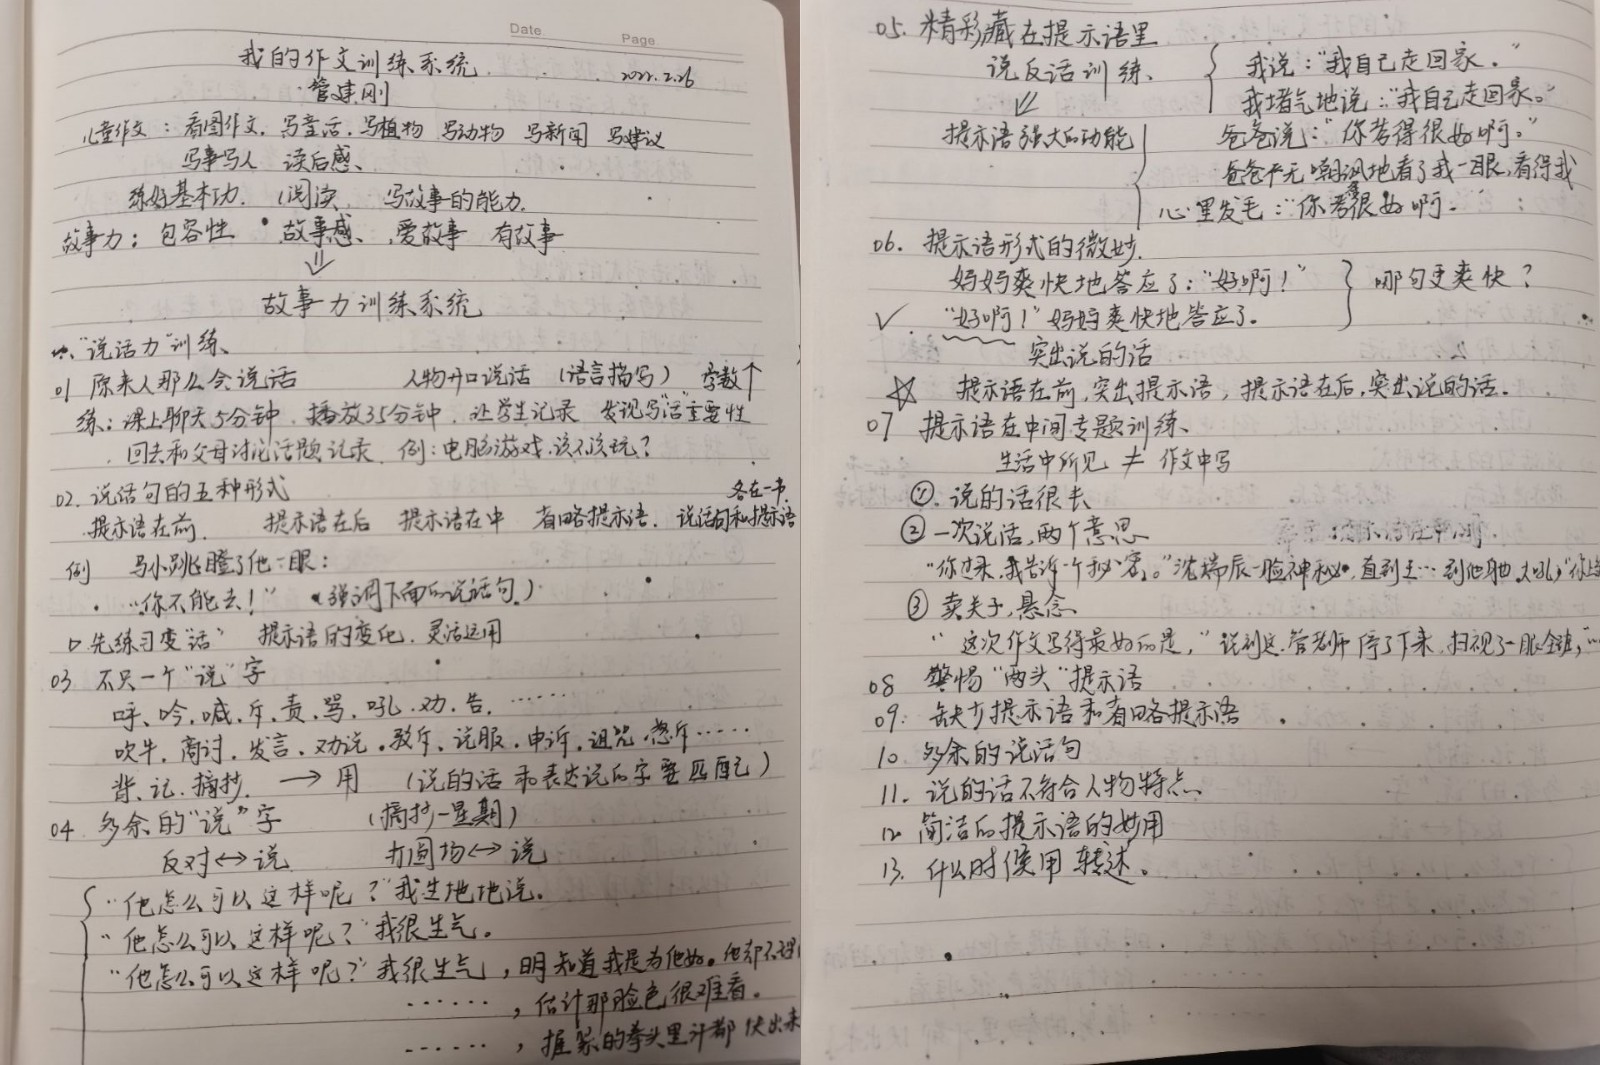 Date
Page
我的作文训练系统 2022.2.26
管建刚
儿童作文：看图作文、写童话、写植物 写动物 写新闻 写建议
写事写人 读后感、
练好基本功. (阅读 写故事的能力.
故事力：包容性 故事感、爱故事 有故事
⇓
故事力训练系统
一、“说话力”训练、
01 原来人那么会说话 人物开口说话 (语言描写) 字数↑
练：课上聊天5分钟，播放35分钟，让学生记录 发现写“话”重要性
回去和父母讨论话题记录 例：电脑游戏，该不该玩？
02. 说话句的五种形式 各在一书.
提示语在前 提示语在后 提示语在中 省略提示语. 说话句和提示语
例 马小跳瞪了他一眼：
“你不能去！” (强调下面的说话句.)
先练习变“话” 提示语的变化. 灵活运用
03 不只一个“说”字
呼、吟、喊、斥、责、骂、吼、劝、告. ……
吹牛，商讨，发言，劝说，驳斥、说服，申诉，诅咒，怒斥……
背、记、摘抄. → 用 (说的话 和表达说的字要匹配)
04 多余的“说”字 (摘抄一星期)
反对↔说 方圆均↔说
“他怎么可以这样呢？”我生地地说.
“他怎么可以这样呢？”我很生气。
“他怎么可以这样呢？”我很生气，明知道我是为他好。他却不
……，估计那脸色很难看。
……，握紧的拳头里汗都快出来
05. 精彩藏在提示语里
说反话训练、 我说：“我自己走回家.”
⇓ 我堵气地说：“我自己走回家。”
提示语强大的功能 爸爸说：“你考得很好啊。”
爸爸不无嘲讽地看了我一眼，看得我
心里发毛：“你考很好啊.
06. 提示语形式的微妙.
妈妈爽快地答应了：“好啊！” 哪句更爽快？
✓ “好啊！”妈妈爽快地答应了.
突出说的话
☆ 提示语在前，突出提示语，提示语在后，突出说的话.
07 提示语在中间专题训练、
生活中所见 ≠ 作文中写
①. 说的话很长
② 一次说话，两个意思
“你过来，我告诉一个秘密。”沈瑞辰一脸神秘.
③ 卖关子，悬念
“这次作文写得最好的是，”说到这.管老师停了下来，扫视了一眼全班，“…
08 警惕“两头”提示语
09. 缺少提示语和省略提示语
10 多余的说话句
11. 说的话不符合人物特点
12 简洁的提示语的妙用
13. 什么时候用转述。